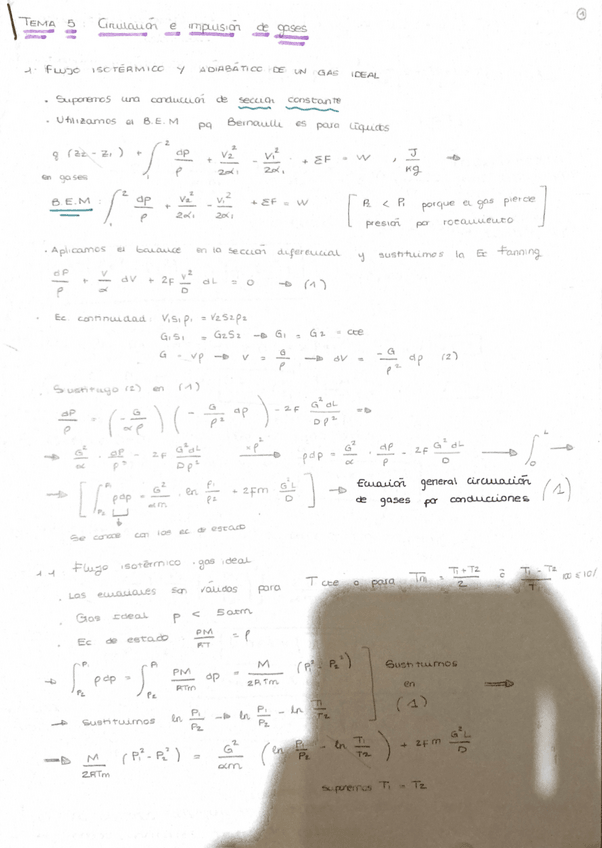 1
TEMA 5: Circulación e impulsión de gases
1. FLUJO ISOTÉRMICO Y ADIABÁTICO DE UN GAS IDEAL
• Suponemos una conducción de sección constante
• Utilizamos el B.E.M pq Bernoulli es para líquidos
g (z2 - z1) + ∫₁² dp/ρ + V2²/2α1 - V1²/2α1 + ΣF = W , J/kg →
en gases
B.E.M: ∫₁² dp/ρ + V2²/2α1 - V1²/2α1 + ΣF = W [ P2 < P1 porque el gas pierde presión por rozamiento ]
• Aplicamos el balance en la sección diferencial y sustituimos la Ec Fanning
dP/ρ + V/α dV + 2F V²/D dL = 0 → (1)
• Ec continuidad: V1S1ρ1 = V2S2ρ2
G1S1 = G2S2 → G1 = G2 = cte
G = Vρ → V = G/ρ → dV = -G/ρ² dρ (2)
• Sustituyo (2) en (1)
dP/ρ = (-G/αρ) (-G/ρ² dρ) - 2F G²dL/Dρ² ⇒
→ G²/α · dρ/ρ³ - 2F G²dL/Dρ² —·ρ²→ ρdp = G²/α · dρ/ρ - 2F G²dL/D → ∫₀ᴸ →
→ [ ∫_P2^P1 ρdp = G²/αm · ln ρ1/ρ2 + 2Fm G²L/D ] → Ecuación general circulación de gases por conducciones (1)
Se conoce con las ec de estado
1.1 Flujo isotérmico gas ideal
• Las ecuaciones son válidas para T cte o para Tm = T1+T2/2 ó T1-T2/T1
• Gas Ideal P < 5atm
• Ec de estado PM/RT = ρ
→ ∫_P2^P1 ρdp = ∫_P2^P1 PM/RTm dp = M/2RTm (P1² - P2²) ] Sustituimos en (1) ⇒
→ Sustituimos ln ρ1/ρ2 → ln P1/P2 - ln T1/T2
⇒ M/2RTm (P1² - P2²) = G²/αm (ln P1/P2 - ln T1/T2) + 2Fm G²L/D
suponemos T1 = T2